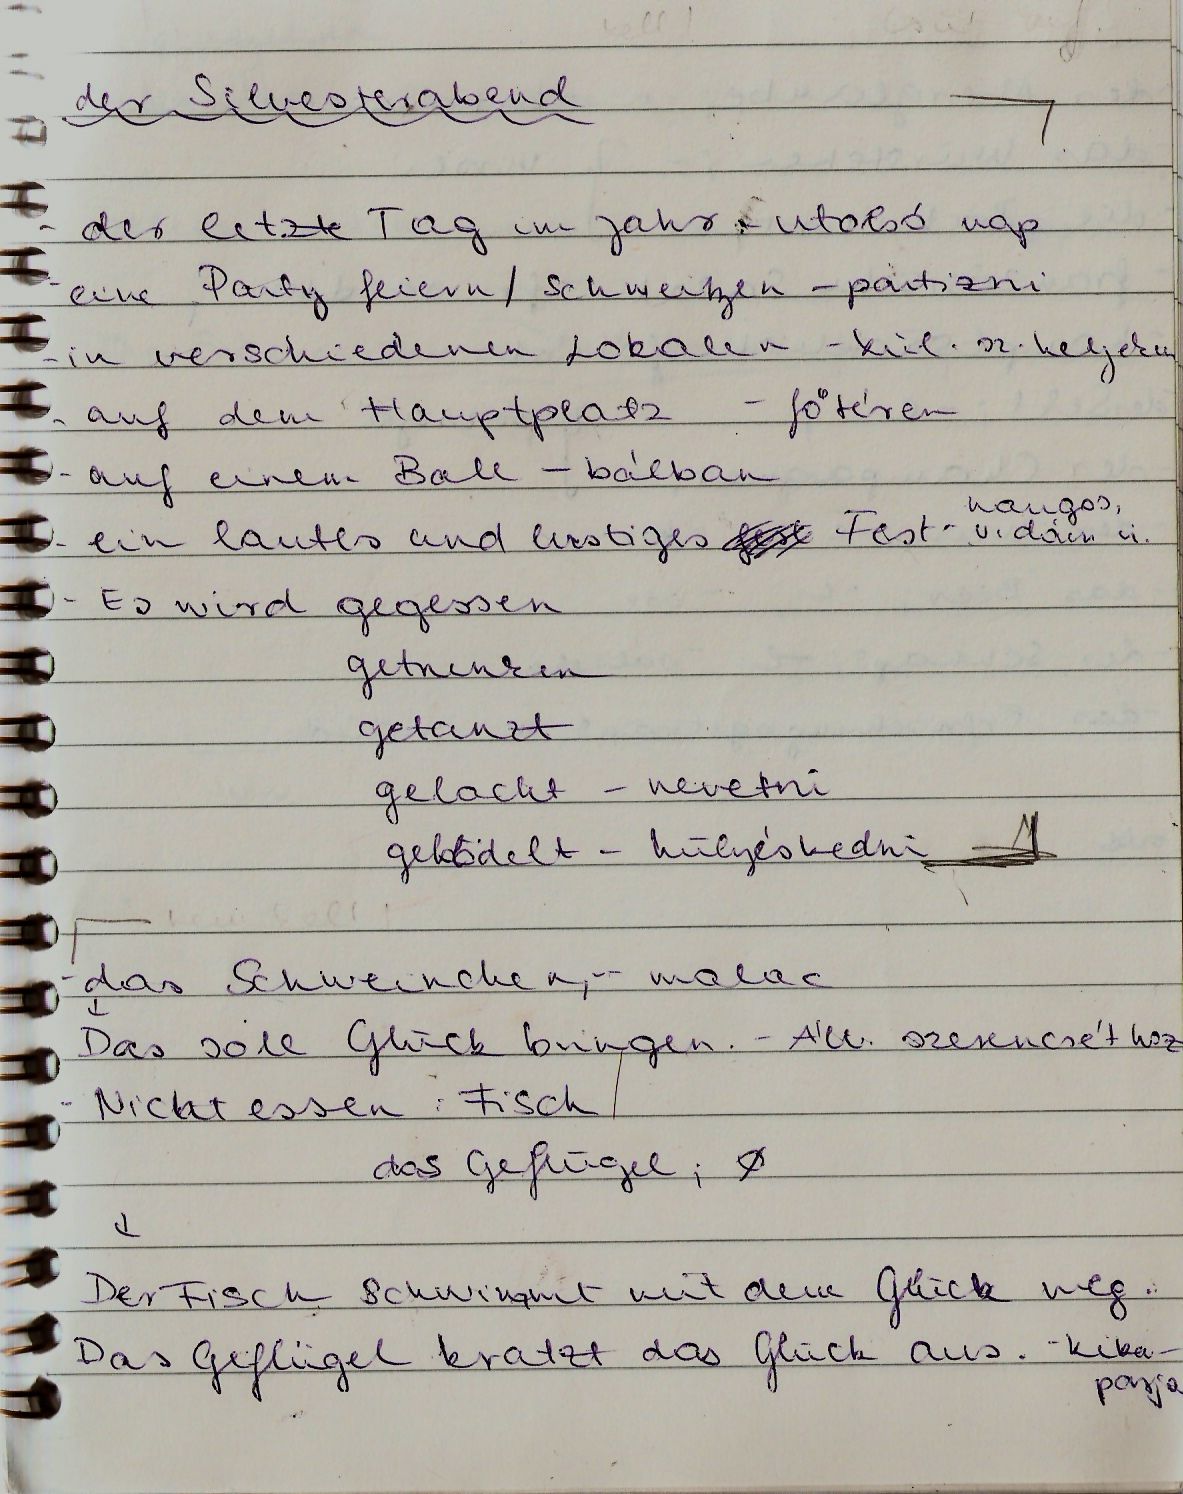 der Silvesterabend
- der letzte Tag im Jahr - utolsó nap
- eine Party feiern / schmeitzen - partizni
- in verschiedenen Lokalen - kül. sz. helyeken
- auf dem Hauptplatz - főtéren
- auf einem Ball - bálban
- ein lautes und lustiges Fest - hangos,
vidám ü.
- Es wird gegessen
getrunken
getanzt
gelacht - nevetni
geblödelt - hülyéskedni
- das Schweinchen, - - malac
↓
Das soll Glück bringen. - Áll. szerencsét hoz
- Nicht essen : Fisch
das Geflügel ; Ø
↓
Der Fisch schwimmt mit dem Glück weg.
Das Geflügel kratzt das Glück aus. - kika-
parja